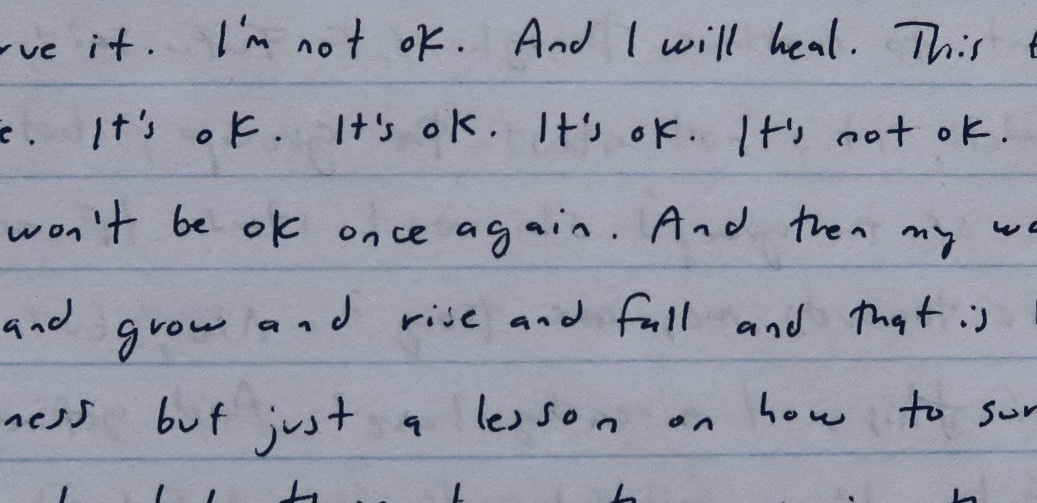 rve it. I'm not ok. And I will heal. This
e. It's ok. It's ok. It's ok. It's not ok.
won't be ok once again. And then my
and grow and rise and fall and that is
ness but just a lesson on how to sur